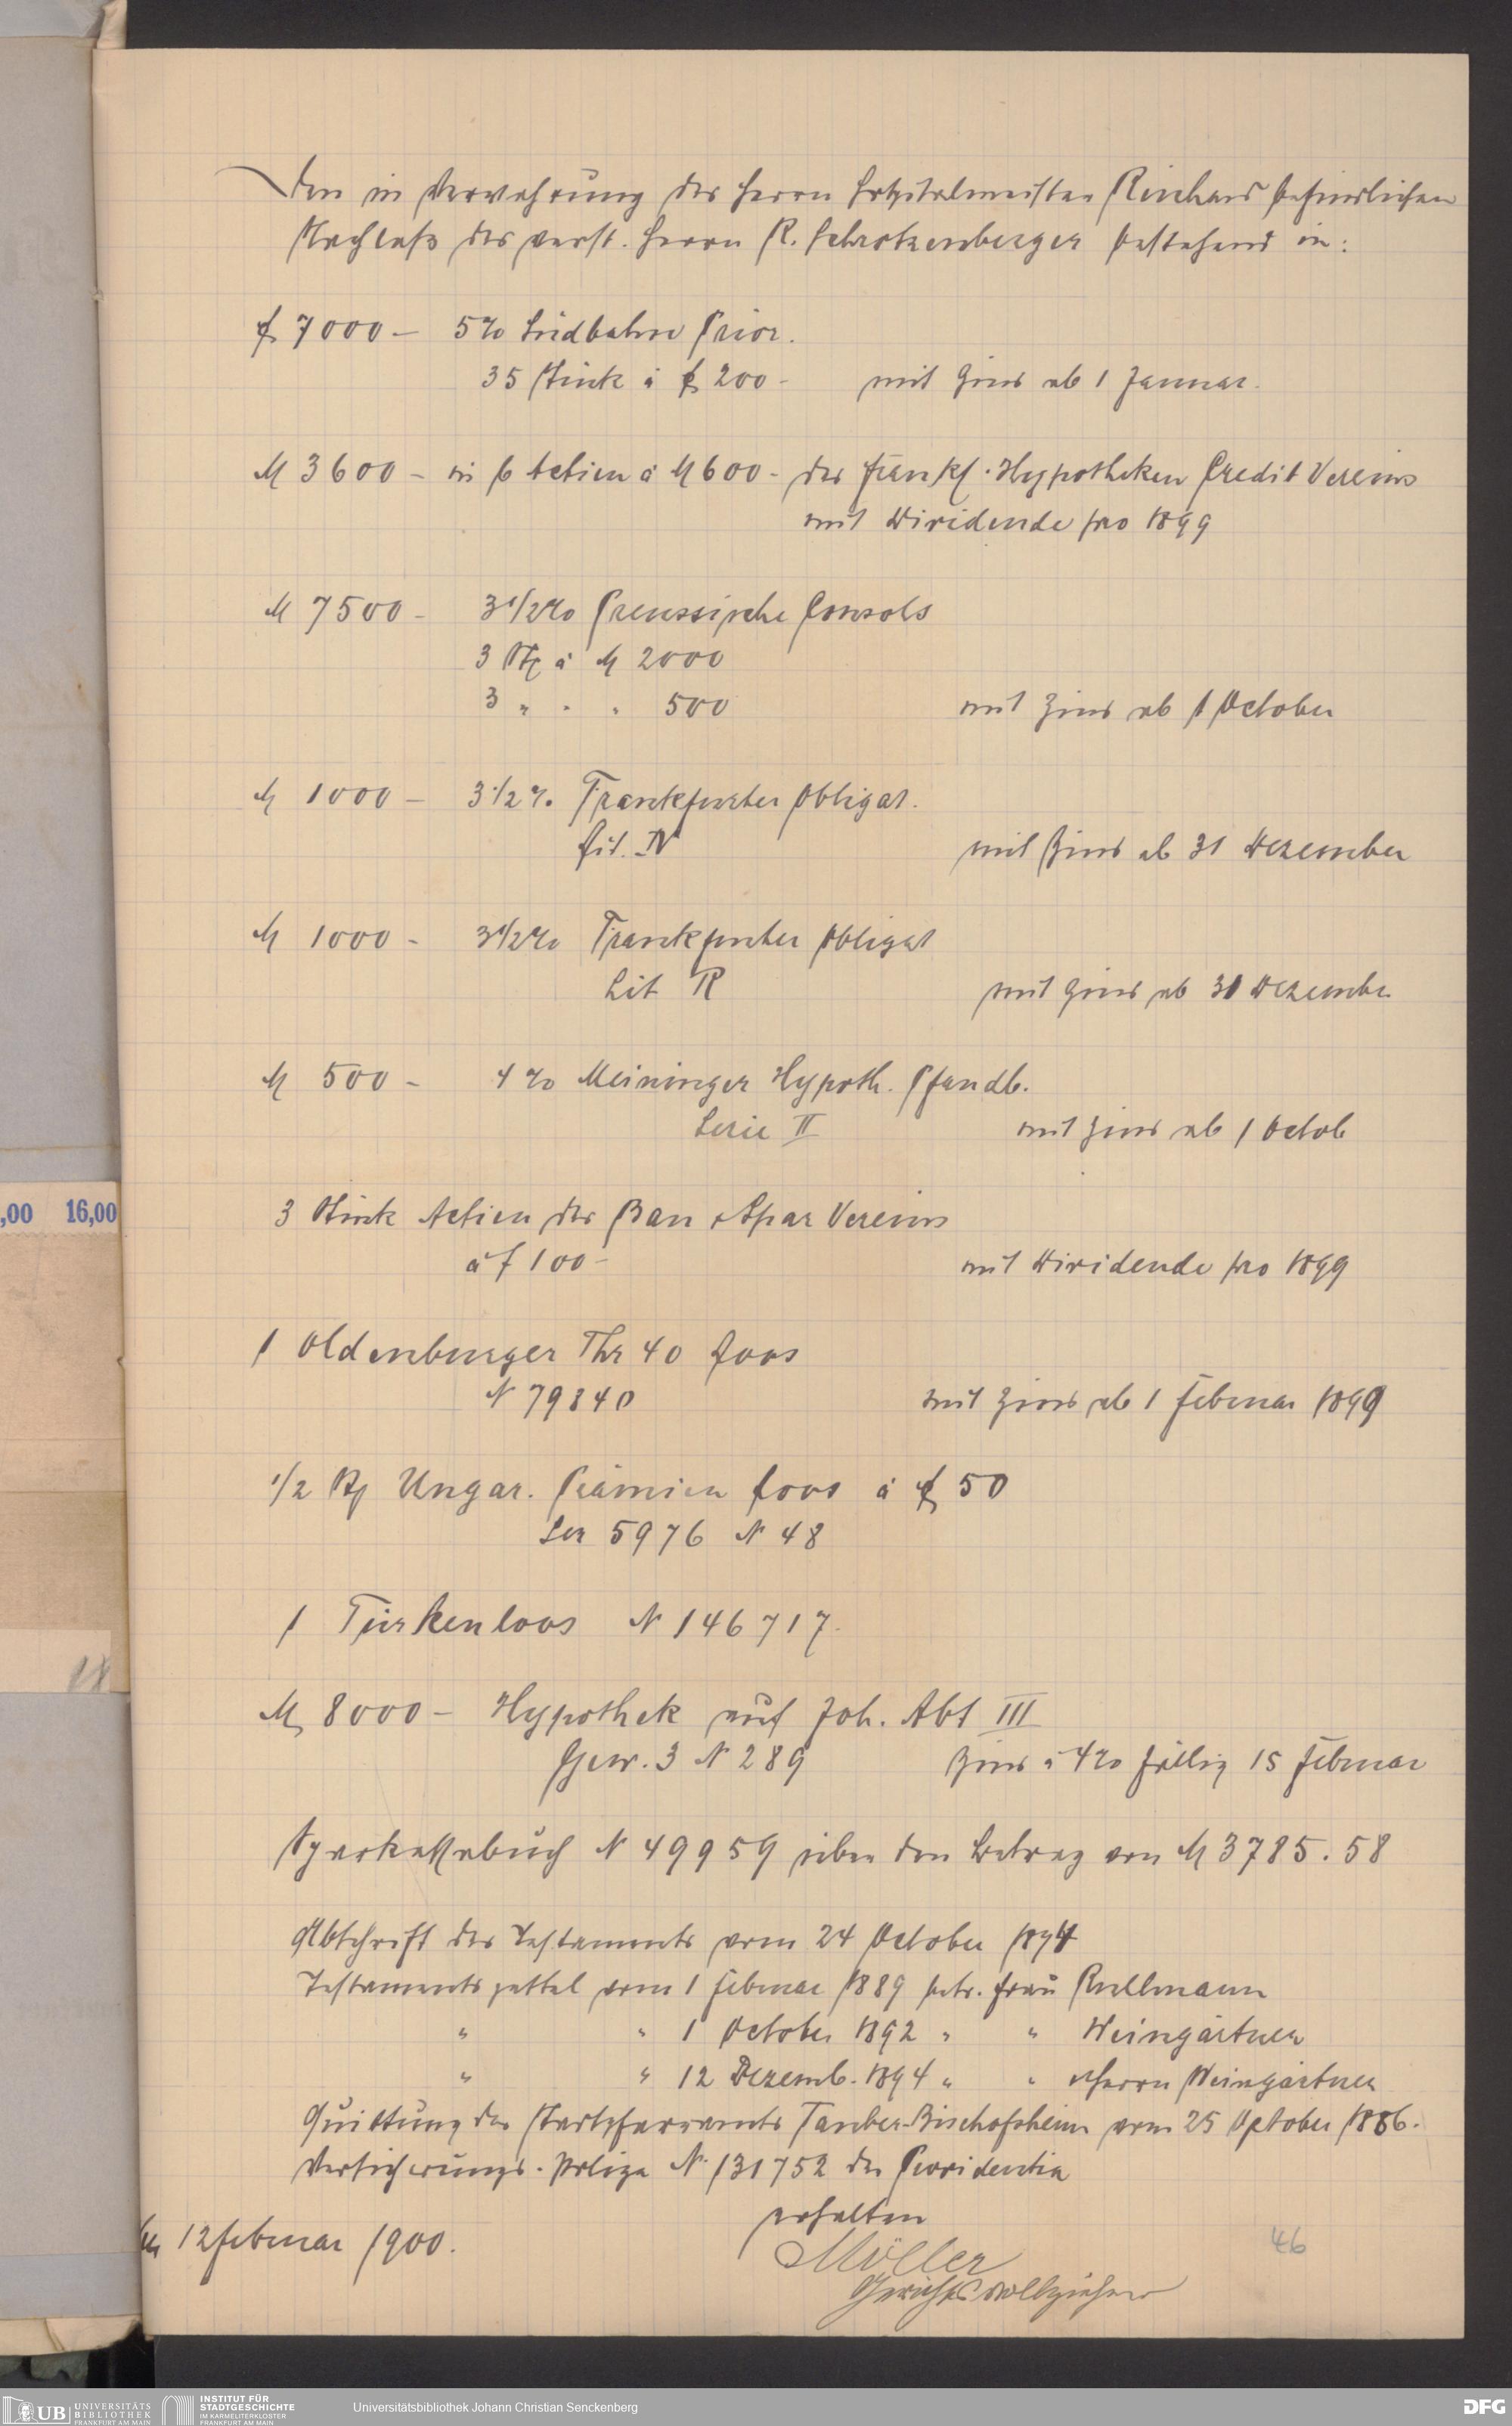 Den in Verwahrung des Herrn Hospitalmeister Reichard befindlichen
Nachlaß des verst. Herrn R. Schrotzenberger bestehend in:
fl 7000 – 5% Südbahn Prior.
35 Stück à fl 200 – mit Zins ab 1 Januar.
M 3600 – in 6 Actien à M 600 – des Frankf. Hypotheken Credit Vereins
mit Dividende pro 1899
M 7500 – 3 1/2% Preussische Consols
3 St. à M 2000
3 " " " 500 mit Zins ab 1 October
M 1000 – 3 1/2 % Frankfurter Obligat.
Lit. N mit Zins ab 31 Dezember
M 1000 – 3 1/2% Frankfurter Obligat
Lit R mit Zins ab 31 Dezember
M 500 – 4% Meininger Hypoth. Pfandb.
Serie II mit Zins ab 1 Octob
3 Stück Actien des Bau & Spar Vereins
à f 100 – mit Dividende pro 1899
1 Oldenburger Thr 40 Loos
N 79840 mit Zins ab 1 Februar 1899
1/2 St Ungar. Prämien Loos à fl 50
Ser 5976 N 48
1 Türkenloos N 146717.
M 8000 – Hypothek auf Joh. Abt III
Gew. 3 N 289 Zins à 4% fällig 15 Februar
Sparkassabuch N 49959 über den Betrag von M 3785.58
Abschrift des Testaments vom 24 October 1894
Testamentszettel vom 1 Februar 1889 betr. Frau Rullmann
" " 1 October 1892 " " Weingärtner
" " 12 Dezemb. 1894 " " & Herrn Weingärtner
Quittung des Stadtpfarramts Tauber-Bischofsheim vom 25 October 1886.
Versicherungs-Poliza N. 131752 der Providentia
erhalten
12 Februar 1900.
Möller
Gerichtsvollzieher
46
,00 16,00
UB UNIVERSITÄTS
BIBLIOTHEK
FRANKFURT AM MAIN
INSTITUT FÜR
STADTGESCHICHTE
IM KARMELITERKLOSTER
FRANKFURT AM MAIN
Universitätsbibliothek Johann Christian Senckenberg
DFG